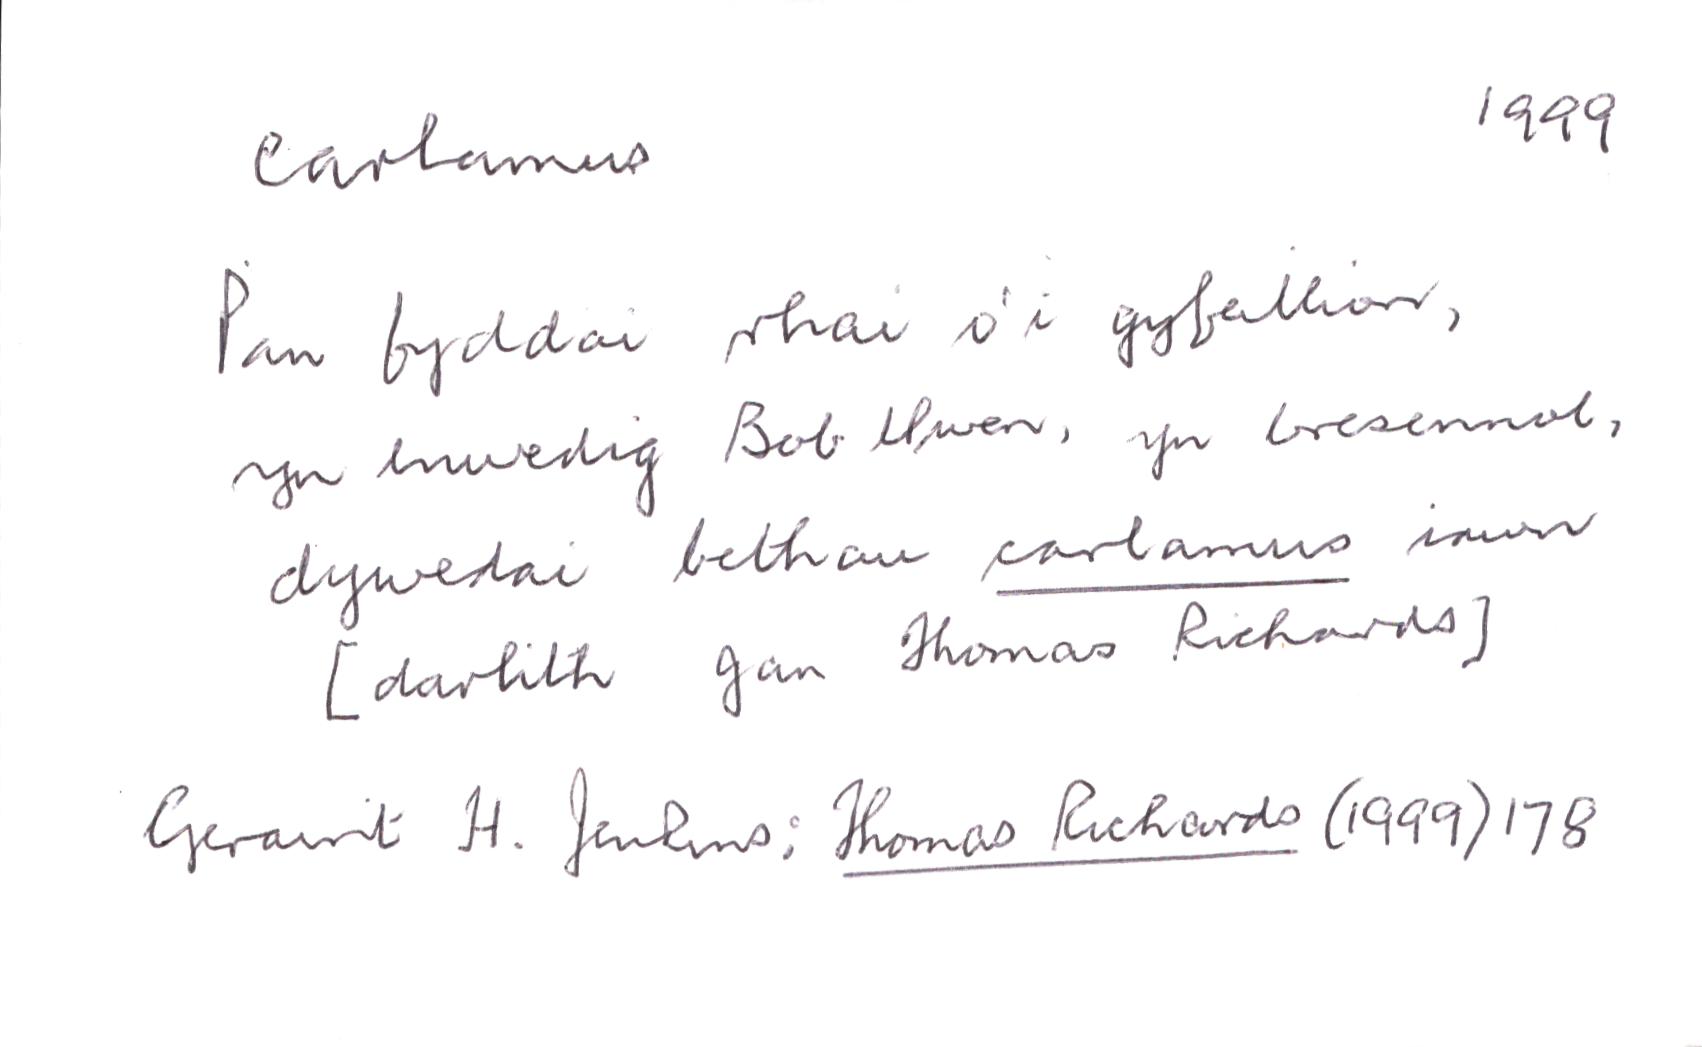 carlamus
1999
Pan fyddai rhai o'i gyfeillion,
yn enwedig Bob Owen, yn bresennol,
dywedai bethau carlamus iawn
[darlith gan Thomas Richards]
Geraint H. Jenkins; Thomas Richards (1999) 178